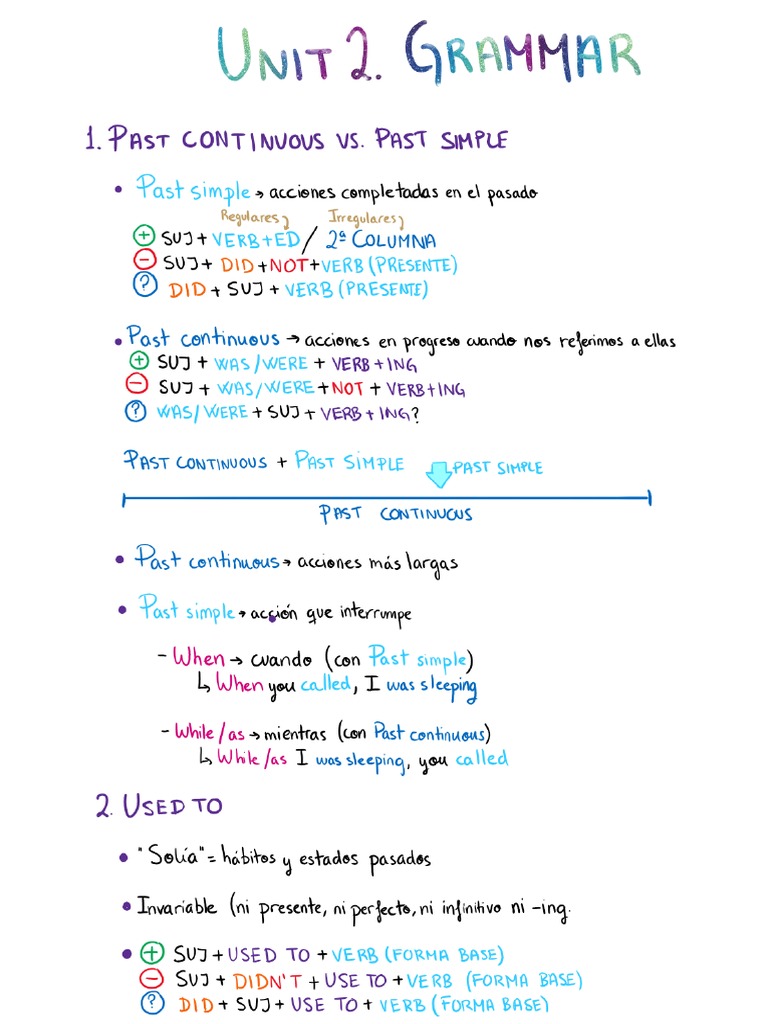 UNIT 2. GRAMMAR
1. PAST CONTINUOUS VS. PAST SIMPLE
• Past simple → acciones completadas en el pasado
Regulares Irregulares
+ SUJ + VERB + ED / 2ª COLUMNA
- SUJ + DID + NOT + VERB (PRESENTE)
? DID + SUJ + VERB (PRESENTE)
• Past continuous → acciones en progreso cuando nos referimos a ellas
+ SUJ + WAS/WERE + VERB + ING
- SUJ + WAS/WERE + NOT + VERB + ING
? WAS/WERE + SUJ + VERB + ING?
PAST CONTINUOUS + PAST SIMPLE
PAST SIMPLE
PAST CONTINUOUS
• Past continuous → acciones más largas
• Past simple → acción que interrumpe
- When → cuando (con Past simple)
↳ When you called, I was sleeping
- While/as → mientras (con Past continuous)
↳ While/as I was sleeping, you called
2. USED TO
• "Solía" = hábitos y estados pasados
• Invariable (ni presente, ni perfecto, ni infinitivo ni -ing.
• + SUJ + USED TO + VERB (FORMA BASE)
- SUJ + DIDN'T + USE TO + VERB (FORMA BASE)
? DID + SUJ + USE TO + VERB (FORMA BASE)